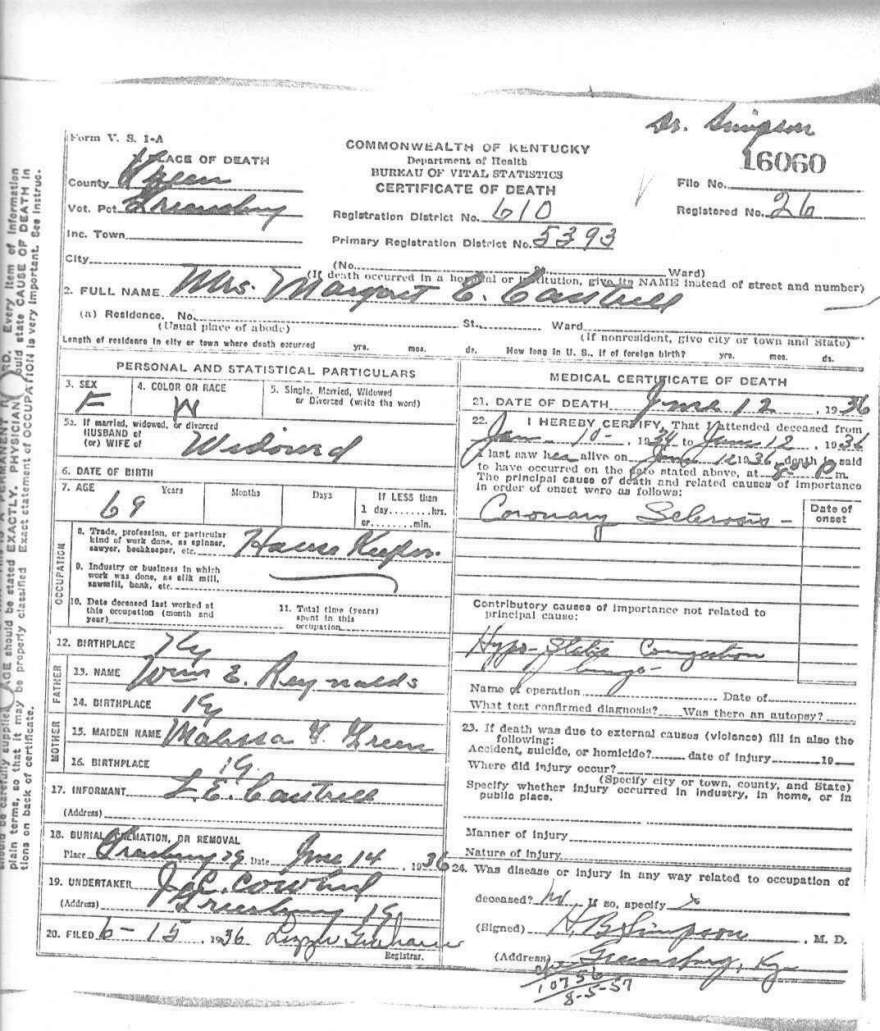 Dr. Simpson
Form V. S. 1-A
PLACE OF DEATH
COMMONWEALTH OF KENTUCKY
Department of Health
BUREAU OF VITAL STATISTICS
CERTIFICATE OF DEATH
16060
File No.
County Green
Vot. Pct. Greensburg
Registration District No. 610
Registered No. 26
Inc. Town
Primary Registration District No. 5393
City
(No.
Ward)
(If death occurred in a hospital or institution, give its NAME instead of street and number)
2. FULL NAME Mrs. Margaret E. Cantrell
(a) Residence. No. St., Ward.
(Usual place of abode)
(If nonresident, give city or town and State)
Length of residence in city or town where death occurred yrs. mos. ds. How long in U. S., if of foreign birth? yrs. mos. ds.
PERSONAL AND STATISTICAL PARTICULARS
3. SEX
F
4. COLOR OR RACE
W
5. Single, Married, Widowed
or Divorced (write the word)
5a. If married, widowed, or divorced
HUSBAND of
(or) WIFE of
Widowed
6. DATE OF BIRTH
7. AGE
69
Years
Months
Days
If LESS than
1 day........hrs.
or........min.
OCCUPATION
8. Trade, profession, or particular
kind of work done, as spinner,
sawyer, bookkeeper, etc.
House Keeper
9. Industry or business in which
work was done, as silk mill,
sawmill, bank, etc.
10. Date deceased last worked at
this occupation (month and
year)
11. Total time (years)
spent in this
occupation
12. BIRTHPLACE Ky
FATHER
13. NAME Wm E. Reynolds
14. BIRTHPLACE Ky
MOTHER
15. MAIDEN NAME Malissa Green
16. BIRTHPLACE Ky
17. INFORMANT L. E. Cantrell
(Address)
18. BURIAL, CREMATION, OR REMOVAL
Place Greensburg Ky Date June 14, 1936
19. UNDERTAKER Cowherd
(Address) Greensburg Ky
20. FILED 6-15, 1936 Lizzie Graham
Registrar.
MEDICAL CERTIFICATE OF DEATH
21. DATE OF DEATH June 12, 1936
22. I HEREBY CERTIFY, That I attended deceased from
Jan 10-, 1934 to June 12, 1936
I last saw her alive on June 12 1936, death is said
to have occurred on the date stated above, at 8 P m.
The principal cause of death and related causes of importance
in order of onset were as follows:
Date of
onset
Coronary Sclerosis -
Contributory causes of importance not related to
principal cause:
Hypo-Static Congestion
lungs -
Name of operation Date of
What test confirmed diagnosis? Was there an autopsy?
23. If death was due to external causes (violence) fill in also the
following:
Accident, suicide, or homicide? date of injury 19
Where did injury occur?
(Specify city or town, county, and State)
Specify whether injury occurred in industry, in home, or in
public place.
Manner of injury
Nature of injury
24. Was disease or injury in any way related to occupation of
deceased? No If so, specify
(Signed) H. B. Simpson, M. D.
(Address) Greensburg, Ky
10756
8-5-57
Every item of information
should be carefully supplied. AGE should be stated EXACTLY. PHYSICIAN should state CAUSE OF DEATH in
plain terms, so that it may be properly classified. Exact statement of OCCUPATION is very important. See instruc-
tions on back of certificate.